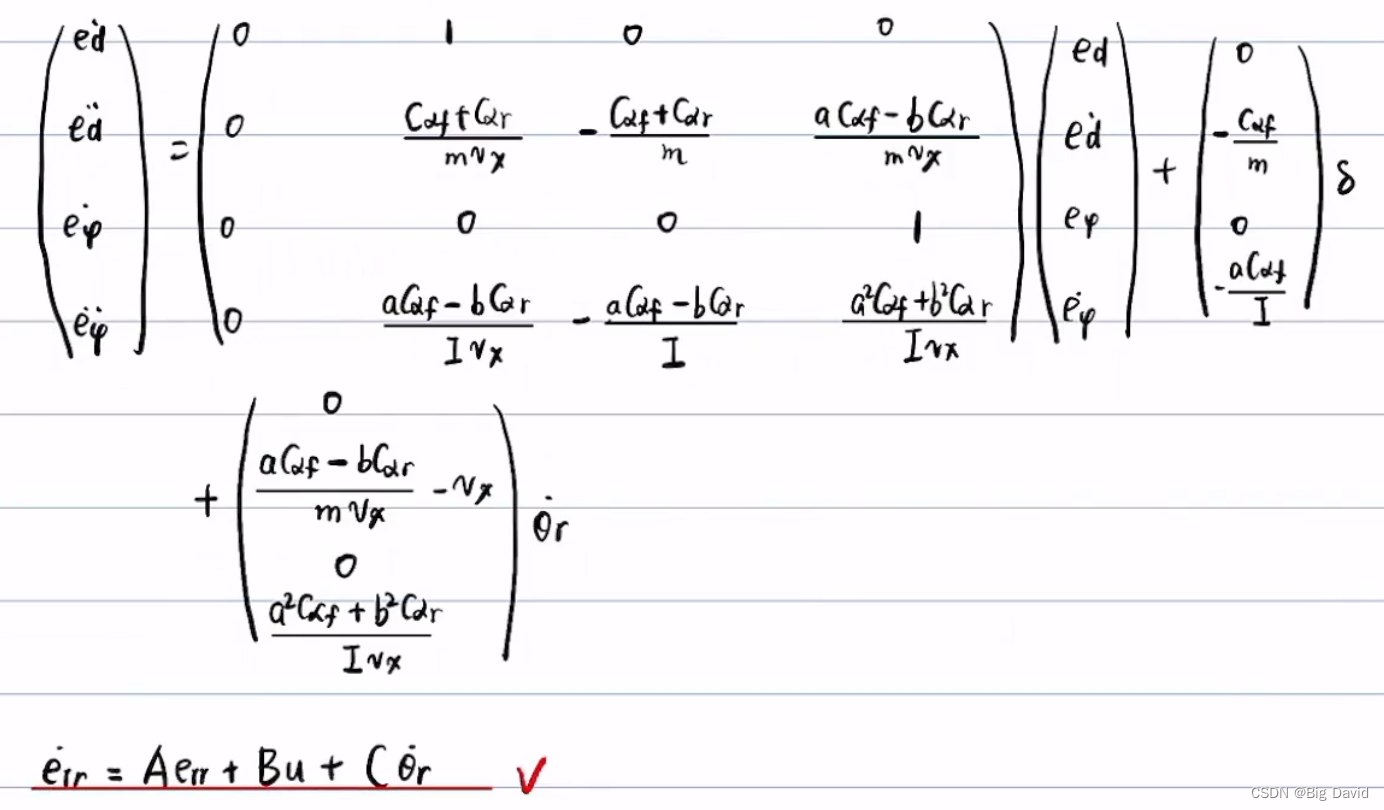 (ėd; ëd; ėφ; ëφ) = (0 1 0 0; 0 (Cαf+Cαr)/(mvx) -(Cαf+Cαr)/m (aCαf-bCαr)/(mvx); 0 0 0 1; 0 (aCαf-bCαr)/(Ivx) -(aCαf-bCαr)/I (a²Cαf+b²Cαr)/(Ivx)) (ed; ėd; eφ; ėφ) + (0; -Cαf/m; 0; -aCαf/I) δ
+ (0; (aCαf-bCαr)/(mvx) -vx; 0; (a²Cαf+b²Cαr)/(Ivx)) θ̇r
ėrr = Aerr + Bu + Cθ̇r √
CSDN @Big_David